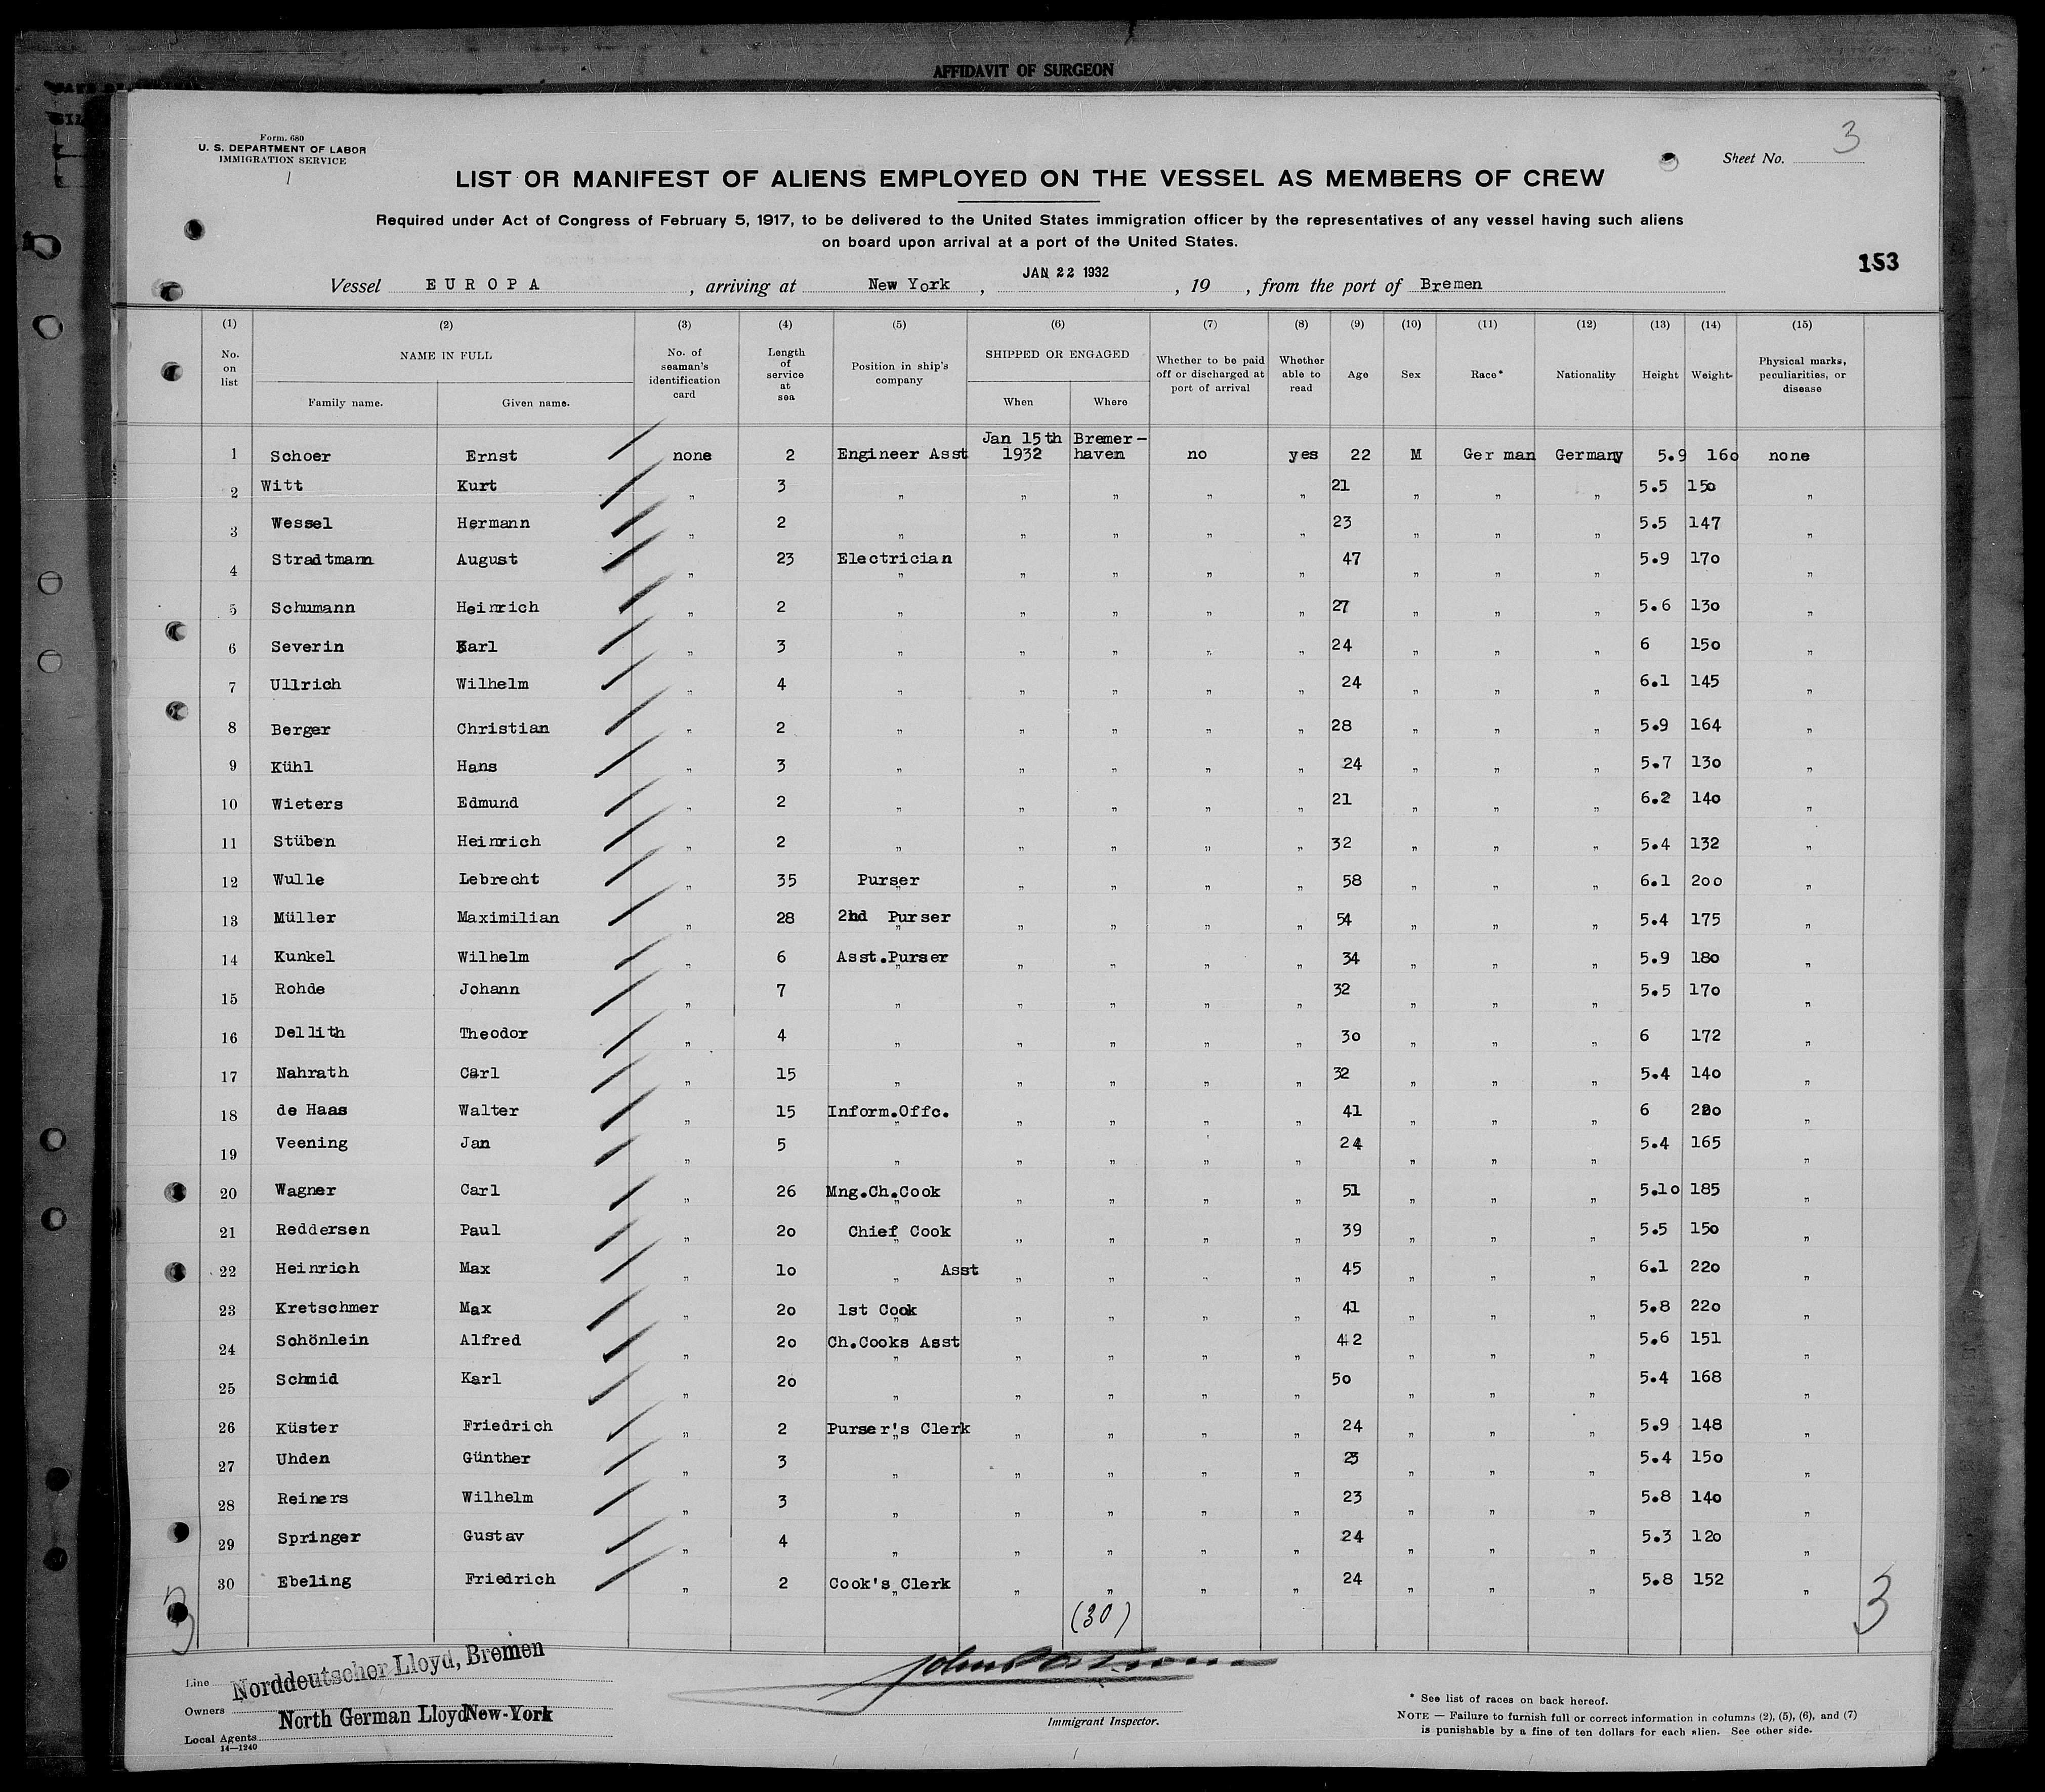 AFFIDAVIT OF SURGEON
Form. 680
U. S. DEPARTMENT OF LABOR
IMMIGRATION SERVICE
1
Sheet No. 3
LIST OR MANIFEST OF ALIENS EMPLOYED ON THE VESSEL AS MEMBERS OF CREW
Required under Act of Congress of February 5, 1917, to be delivered to the United States immigration officer by the representatives of any vessel having such aliens
on board upon arrival at a port of the United States.
153
Vessel EUROPA, arriving at New York, JAN 22 1932, 19 , from the port of Bremen
(1) (2) (3) (4) (5) (6) (7) (8) (9) (10) (11) (12) (13) (14) (15)
No. on list NAME IN FULL Family name. Given name. No. of seaman's identification card Length of service at sea Position in ship's company SHIPPED OR ENGAGED When Where Whether to be paid off or discharged at port of arrival Whether able to read Age Sex Race* Nationality Height Weight Physical marks, peculiarities, or disease
1 Schoer Ernst none 2 Engineer Asst Jan 15th 1932 Bremer-haven no yes 22 M German Germany 5.9 160 none
2 Witt Kurt " 3 " " " " " 21 " " " 5.5 150 "
3 Wessel Hermann " 2 " " " " " 23 " " " 5.5 147 "
4 Stradtmann August " 23 Electrician " " " " " 47 " " " 5.9 170 "
5 Schumann Heinrich " 2 " " " " " 27 " " " 5.6 130 "
6 Severin Karl " 3 " " " " " 24 " " " 6 150 "
7 Ullrich Wilhelm " 4 " " " " " 24 " " " 6.1 145 "
8 Berger Christian " 2 " " " " " 28 " " " 5.9 164 "
9 Kühl Hans " 3 " " " " " 24 " " " 5.7 130 "
10 Wieters Edmund " 2 " " " " " 21 " " " 6.2 140 "
11 Stüben Heinrich " 2 " " " " " 32 " " " 5.4 132 "
12 Wulle Lebrecht " 35 Purser " " " " " 58 " " " 6.1 200 "
13 Müller Maximilian " 28 2nd Purser " " " " " 54 " " " 5.4 175 "
14 Kunkel Wilhelm " 6 Asst.Purser " " " " " 34 " " " 5.9 180 "
15 Rohde Johann " 7 " " " " " 32 " " " 5.5 170 "
16 Dellith Theodor " 4 " " " " " 30 " " " 6 172 "
17 Nahrath Carl " 15 " " " " " 32 " " " 5.4 140 "
18 de Haas Walter " 15 Inform.Offc. " " " " " 41 " " " 6 220 "
19 Veening Jan " 5 " " " " " 24 " " " 5.4 165 "
20 Wagner Carl " 26 Mng.Ch.Cook " " " " " 51 " " " 5.10 185 "
21 Reddersen Paul " 20 Chief Cook " " " " " 39 " " " 5.5 150 "
22 Heinrich Max " 10 " Asst " " " " 45 " " " 6.1 220 "
23 Kretschmer Max " 20 1st Cook " " " " " 41 " " " 5.8 220 "
24 Schönlein Alfred " 20 Ch.Cooks Asst " " " " " 42 " " " 5.6 151 "
25 Schmid Karl " 20 " " " " " 50 " " " 5.4 168 "
26 Küster Friedrich " 2 Purser's Clerk " " " " " 24 " " " 5.9 148 "
27 Uhden Günther " 3 " " " " " 23 " " " 5.4 150 "
28 Reiners Wilhelm " 3 " " " " " 23 " " " 5.8 140 "
29 Springer Gustav " 4 " " " " " 24 " " " 5.3 120 "
30 Ebeling Friedrich " 2 Cook's Clerk " " " " " 24 " " " 5.8 152 "
(30)
3 3
Line Norddeutscher Lloyd, Bremen
Owners
North German Lloyd New-York
Local Agents
14—1240
Immigrant Inspector.
* See list of races on back hereof.
NOTE — Failure to furnish full or correct information in columns (2), (5), (6), and (7)
is punishable by a fine of ten dollars for each alien. See other side.